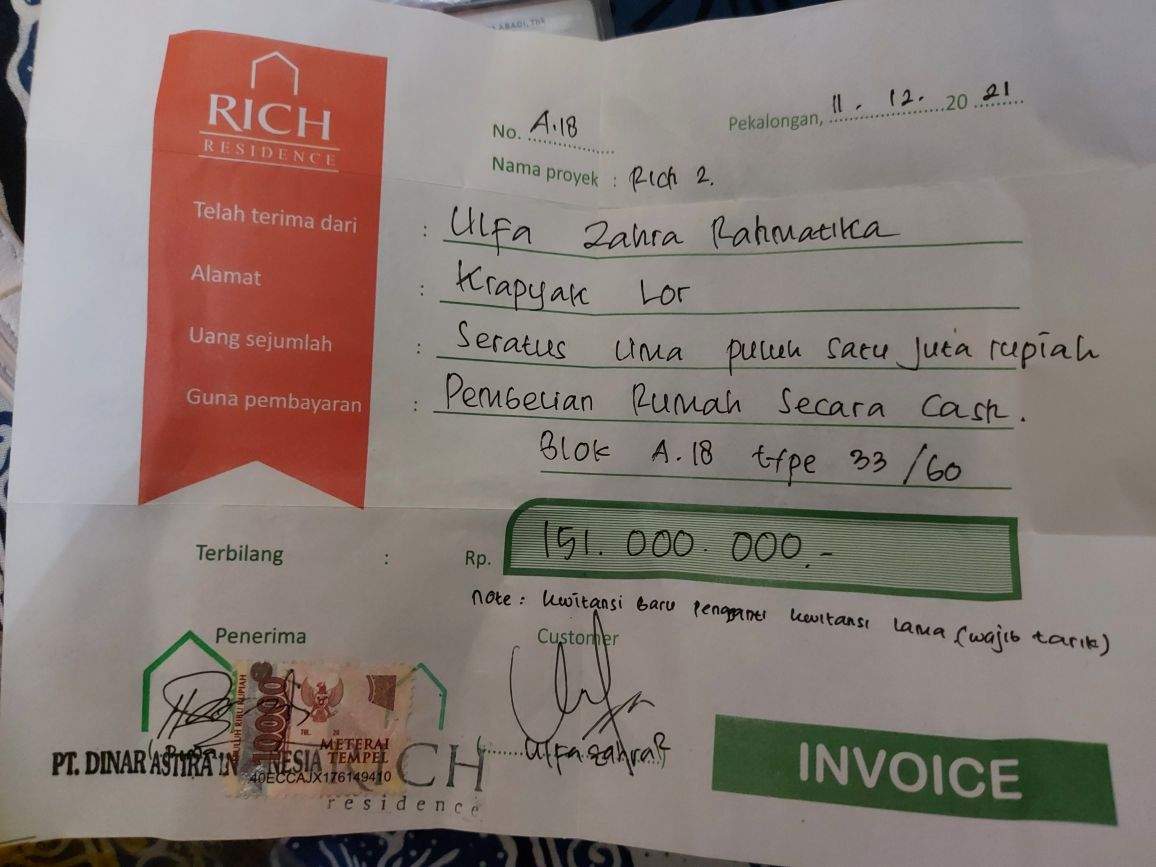 ABADI, Tbk
RICH
RESIDENCE
No. A.18
Pekalongan, 11. 12. 20 21
Nama proyek : Rich 2.
Telah terima dari : Ulfa Zahra Rahmatika
Alamat : Krapyak Lor
Uang sejumlah : Seratus lima puluh satu juta rupiah
Guna pembayaran : Pembelian Rumah Secara Cash.
Blok A.18 type 33/60
Terbilang : Rp. 151.000.000.-
note : kwitansi Baru pengganti kwitansi Lama (wajib tarik)
Penerima
Customer
10000
TGL. 20
METERAI
TEMPEL
40ECCAJX176149410
PT. DINAR ASTIRA IN NESIA
Ulfa Zahra R
RICH
residence
INVOICE